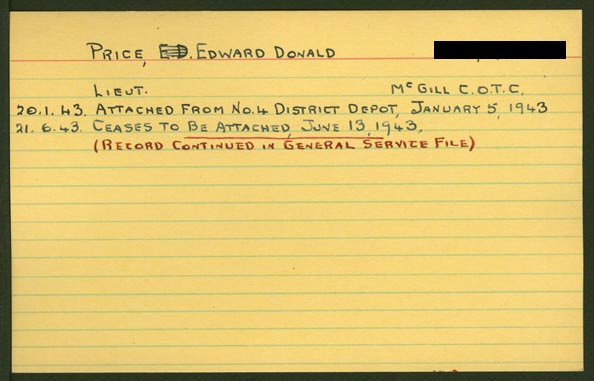 PRICE, E.D. EDWARD DONALD
LIEUT. McGILL C.O.T.C.
20.1.43. ATTACHED FROM NO.4 DISTRICT DEPOT, JANUARY 5, 1943
21.6.43. CEASES TO BE ATTACHED, JUNE 13, 1943.
(RECORD CONTINUED IN GENERAL SERVICE FILE)